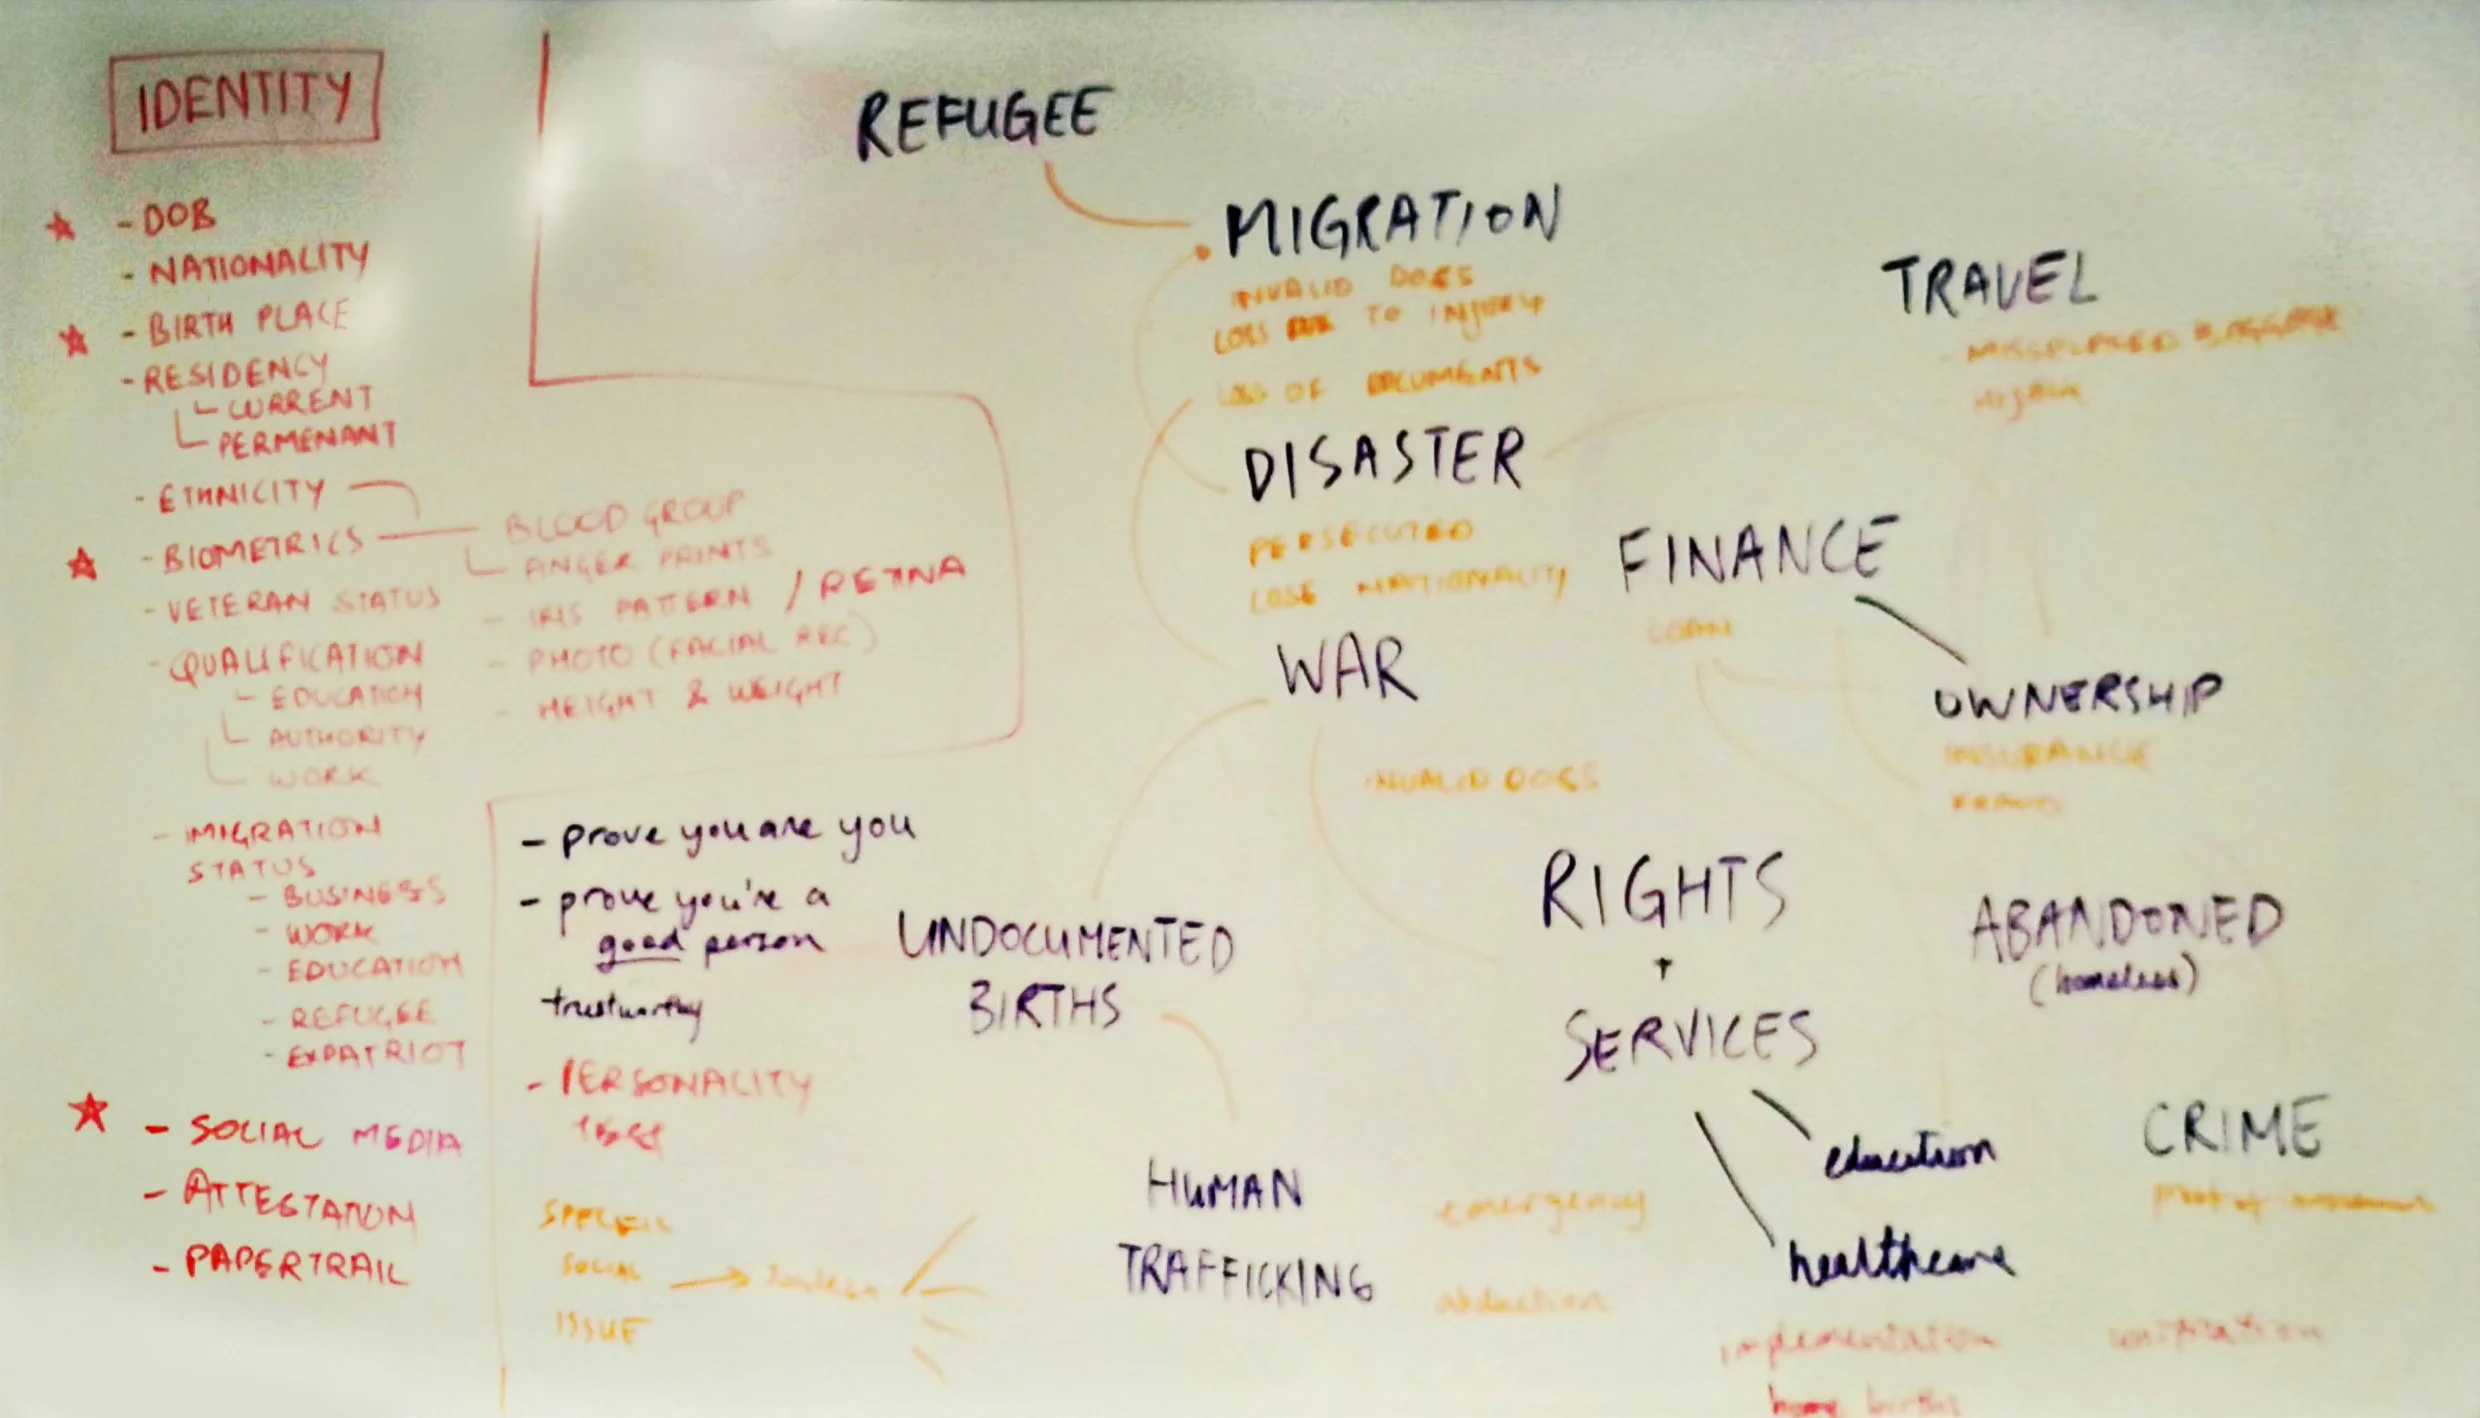 IDENTITY
- DOB
- NATIONALITY
- BIRTH PLACE
- RESIDENCY
CURRENT
PERMENANT
- ETHNICITY
- BIOMETRICS
- VETERAN STATUS
- QUALIFICATION
- EDUCATION
AUTHORITY
WORK
- MIGRATION
STATUS
- BUSINESS
- WORK
- EDUCATION
- REFUGEE
- EXPATRIOT
- SOCIAL MEDIA
- ATTESTATION
- PAPERTRAIL
BLOOD GROUP
FINGER PRINTS
- IRIS PATTERN / RETNA
- PHOTO (FACIAL REC)
- HEIGHT & WEIGHT
- prove you are you
- prove you're a
good person
trustworthy
- PERSONALITY
SOCIAL
ISSUE
REFUGEE
MIGRATION
INVALID DOCS
LOSS DUE TO INJURY
LOSS OF DOCUMENTS
DISASTER
PERSECUTED
LOSE NATIONALITY
WAR
INVALID DOCS
UNDOCUMENTED
BIRTHS
HUMAN
TRAFFICKING
emergency
abduction
TRAVEL
- MISPLACED BAGGAGE
FINANCE
LOAN
OWNERSHIP
INSURANCE
FRAUD
RIGHTS
+
SERVICES
education
healthcare
implementation
home births
ABANDONED
(homeless)
CRIME
proof of